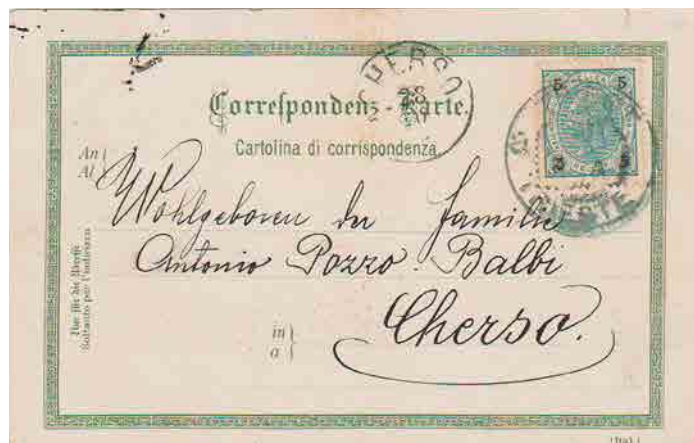 CHERSO
Correſpondenz-Karte.
Cartolina di corrispondenza.
5 5
5 5
An
Al
Wohlgeboren der Familie
Antonio Pozzo-Balbi
in
a
Cherso.
Nur für die Adresse
Soltanto per l'indirizzo